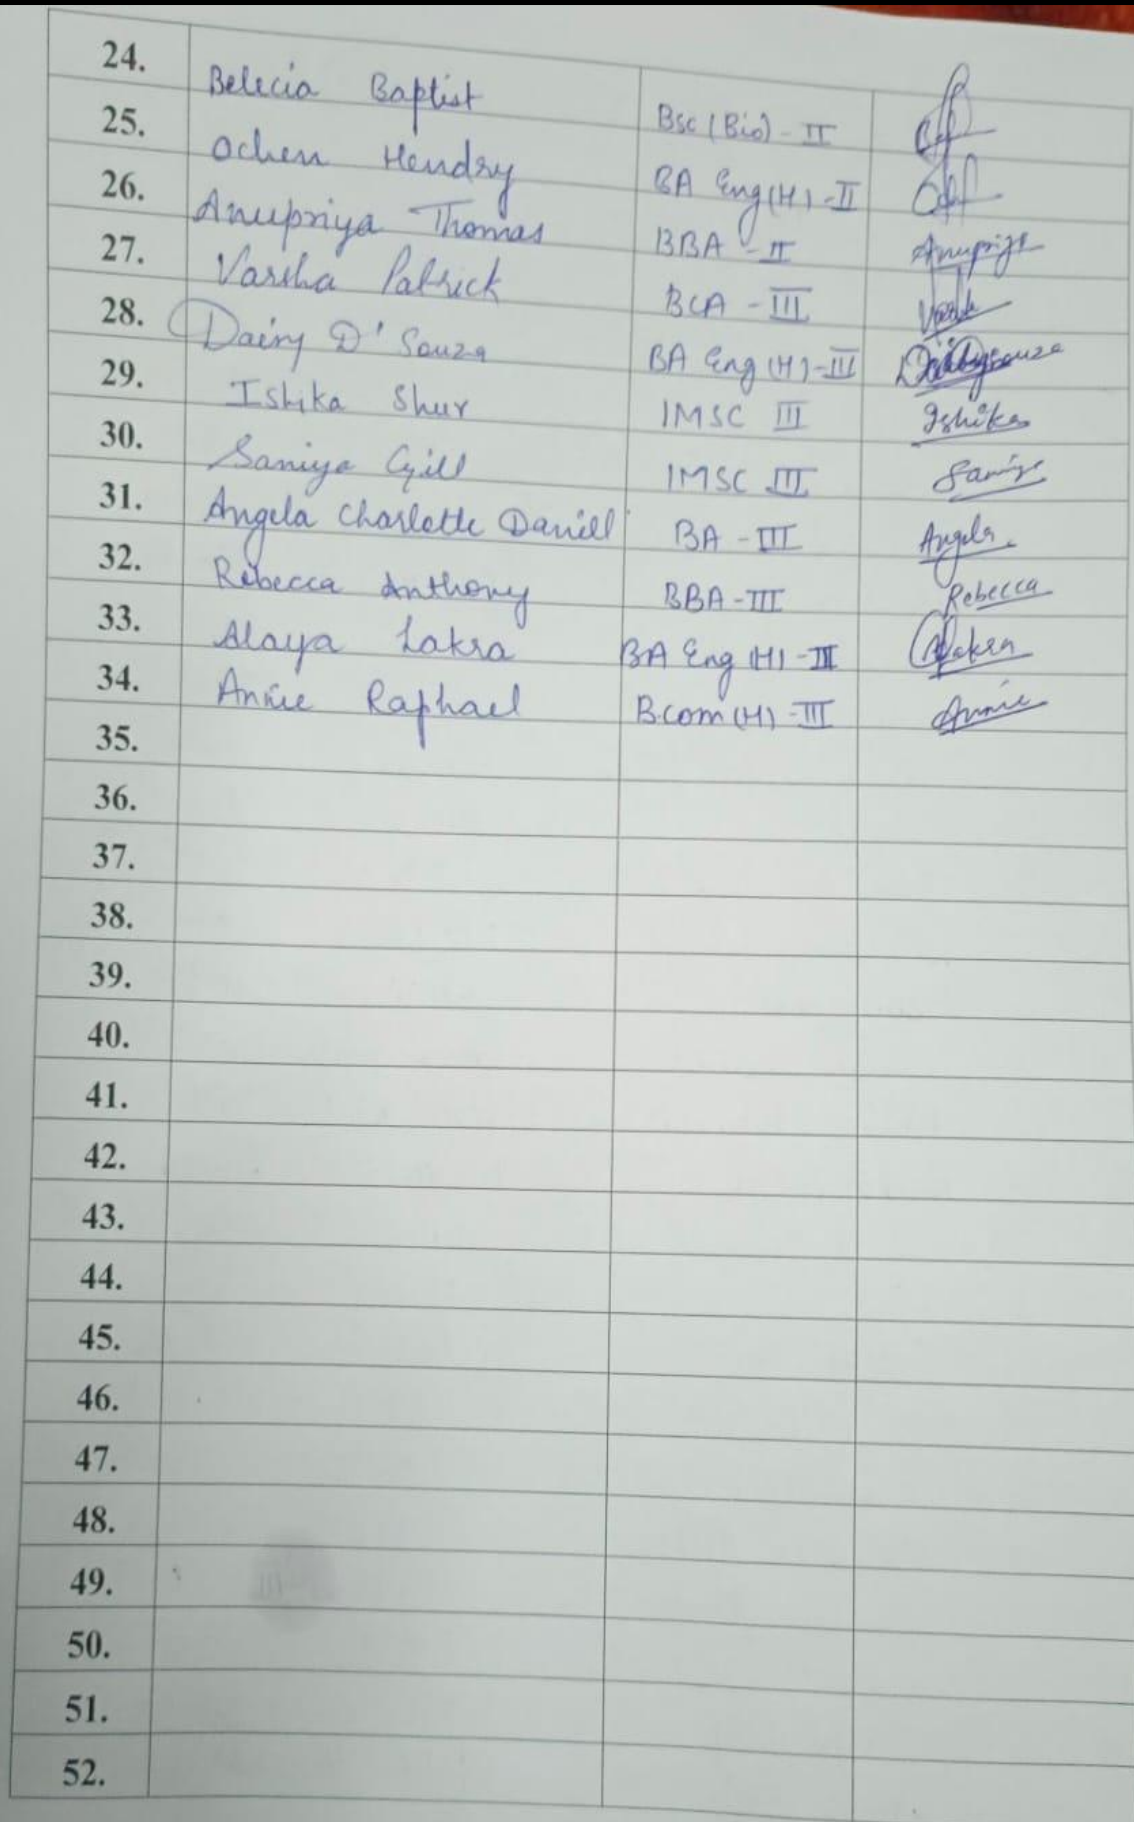 24. Belecia Baptist Bsc (Bio) - II
25. Ochen Hendry BA Eng (H) - II
26. Anupriya Thomas BBA - II Anupriya
27. Varsha Patrick BCA - III Varsha
28. Dainy D'Souza BA Eng (H) - III
29. Ishika Shur IMSC III Ishika
30. Saniya Gill IMSC III Saniya
31. Angela Charlotte Daniell BA - III Angela.
32. Rebecca Anthony BBA - III Rebecca
33. Alaya Lakra BA Eng (H) - III Alakra
34. Annie Raphael B.com (H) - III Annie
35.
36.
37.
38.
39.
40.
41.
42.
43.
44.
45.
46.
47.
48.
49.
50.
51.
52.